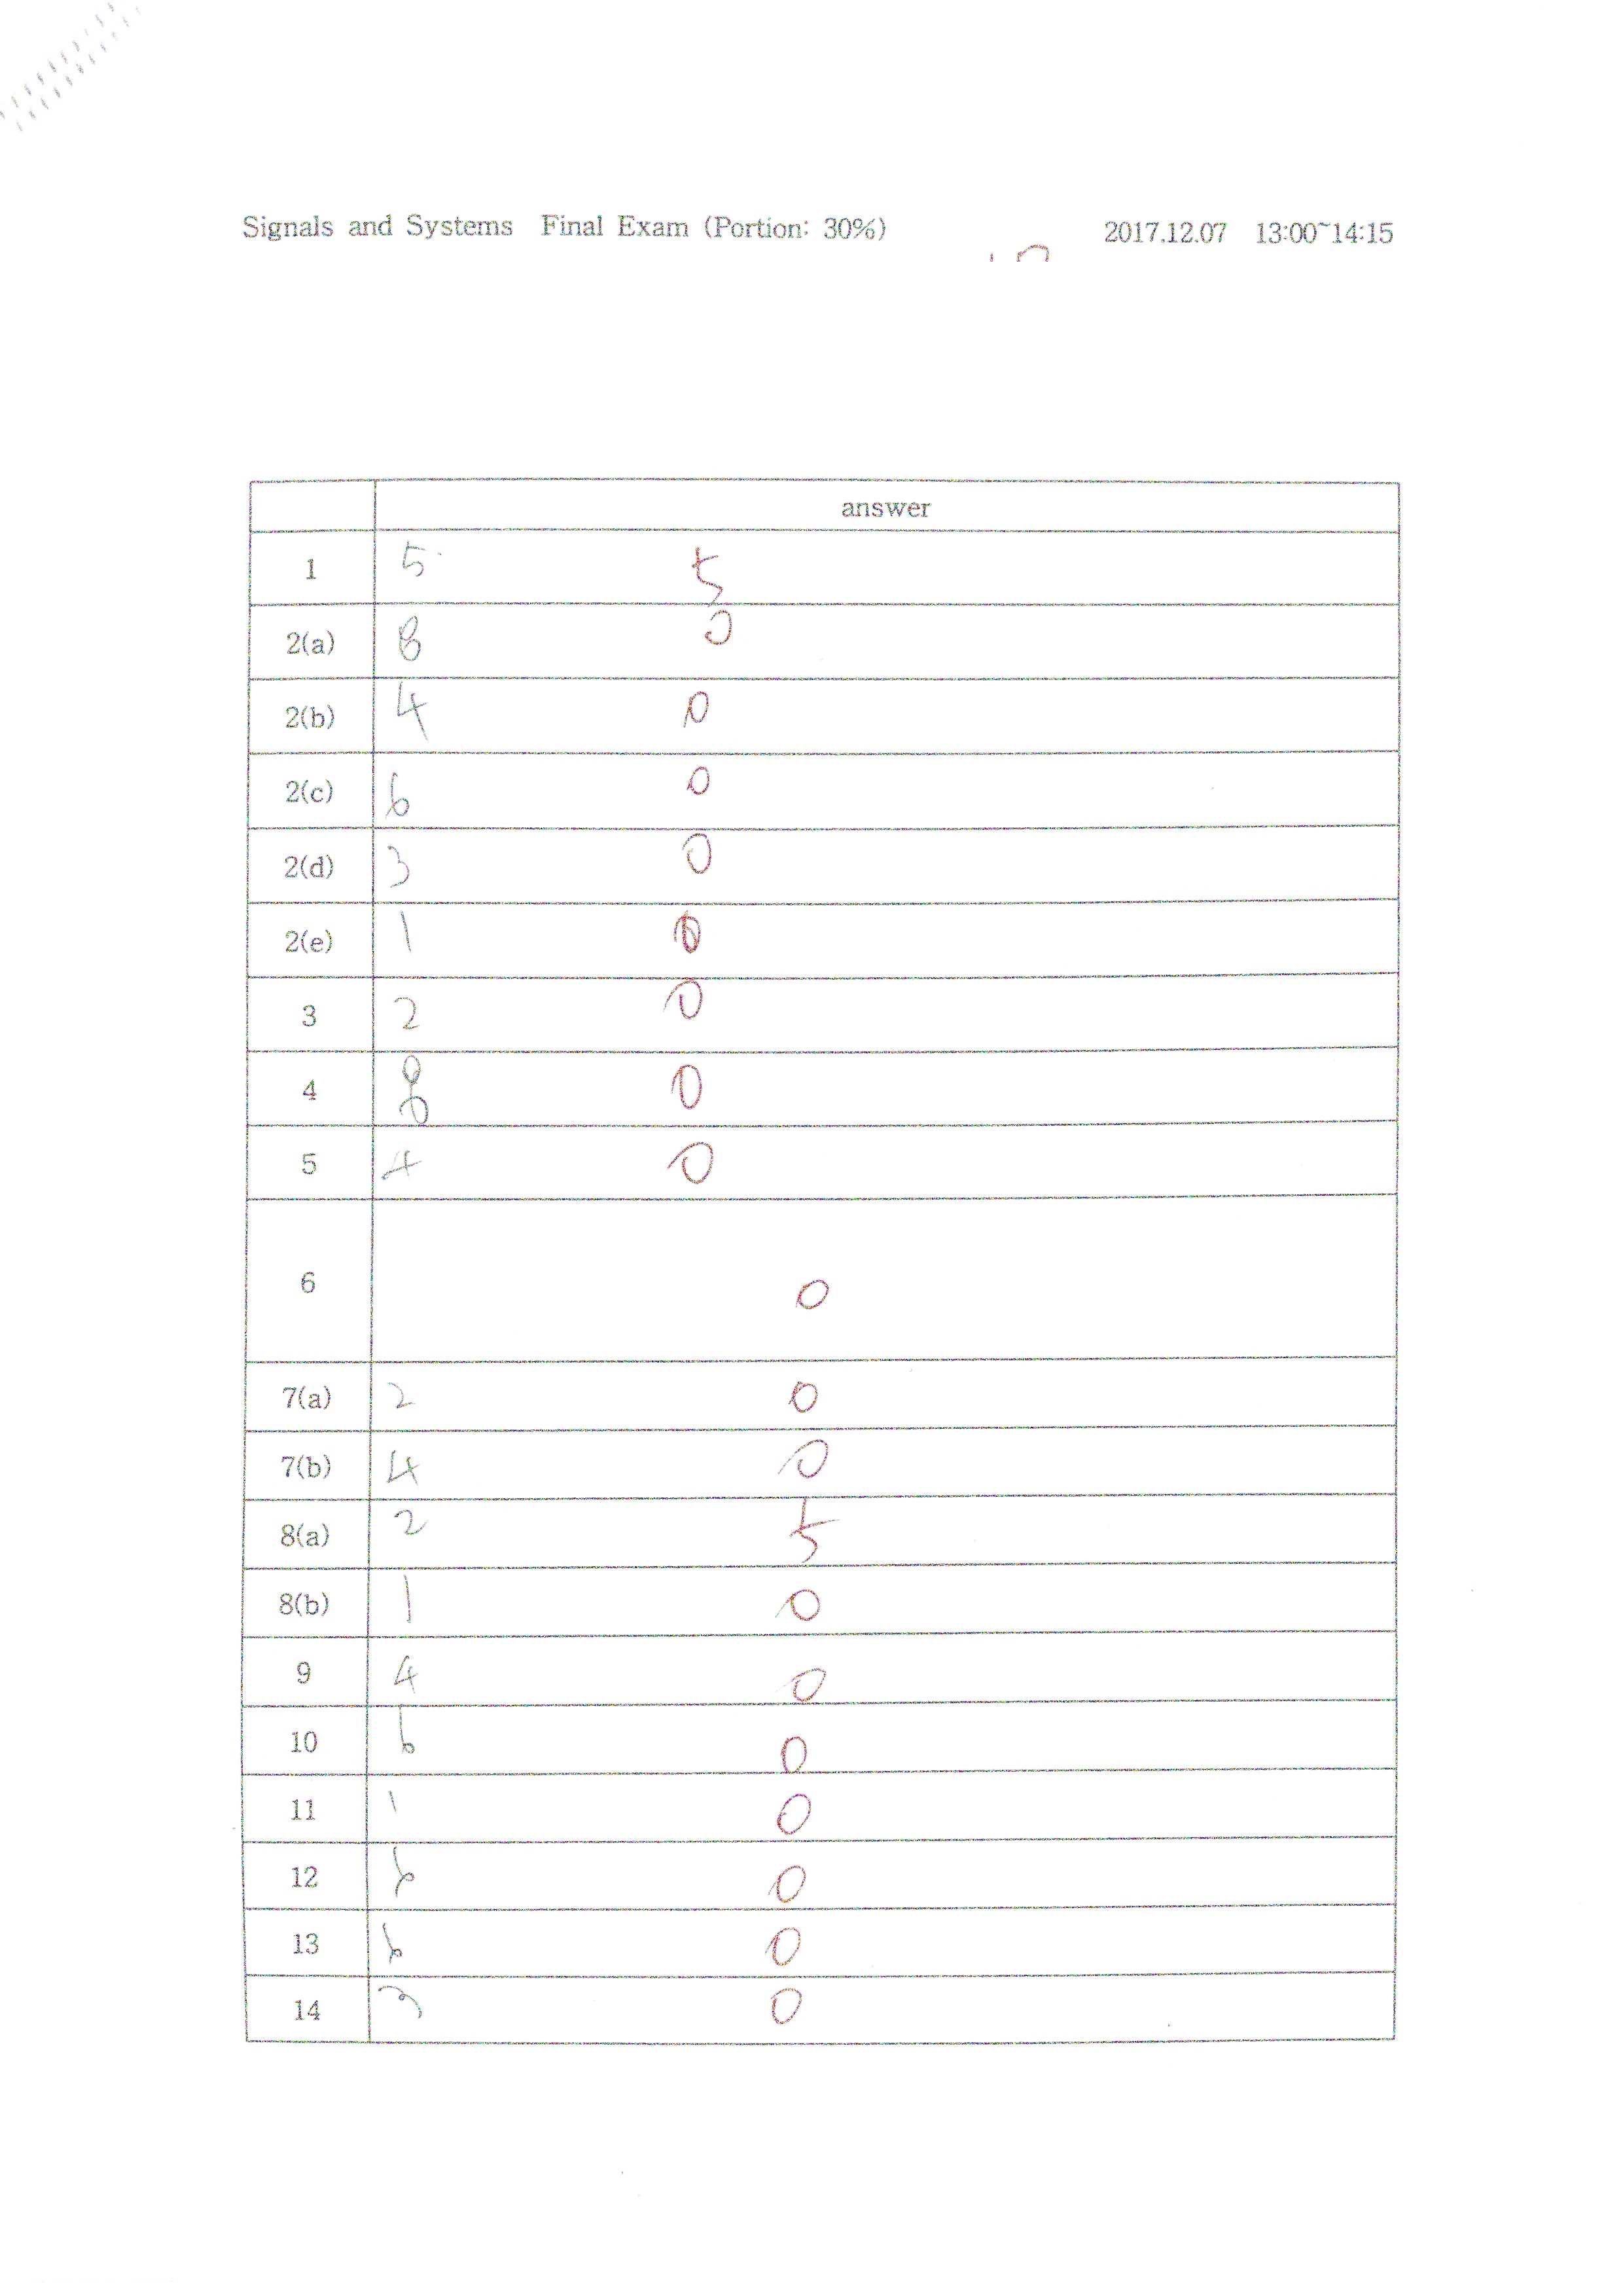 Signals and Systems Final Exam (Portion: 30%) 2017.12.07 13:00~14:15
answer
1 5 5
2(a) 8 0
2(b) 4 0
2(c) 6 0
2(d) 3 0
2(e) 1 0
3 2 0
4 8 0
5 4 0
6 0
7(a) 2 0
7(b) 4 0
8(a) 2 5
8(b) 1 0
9 4 0
10 6 0
11 1 0
12 6 0
13 6 0
14 3 0